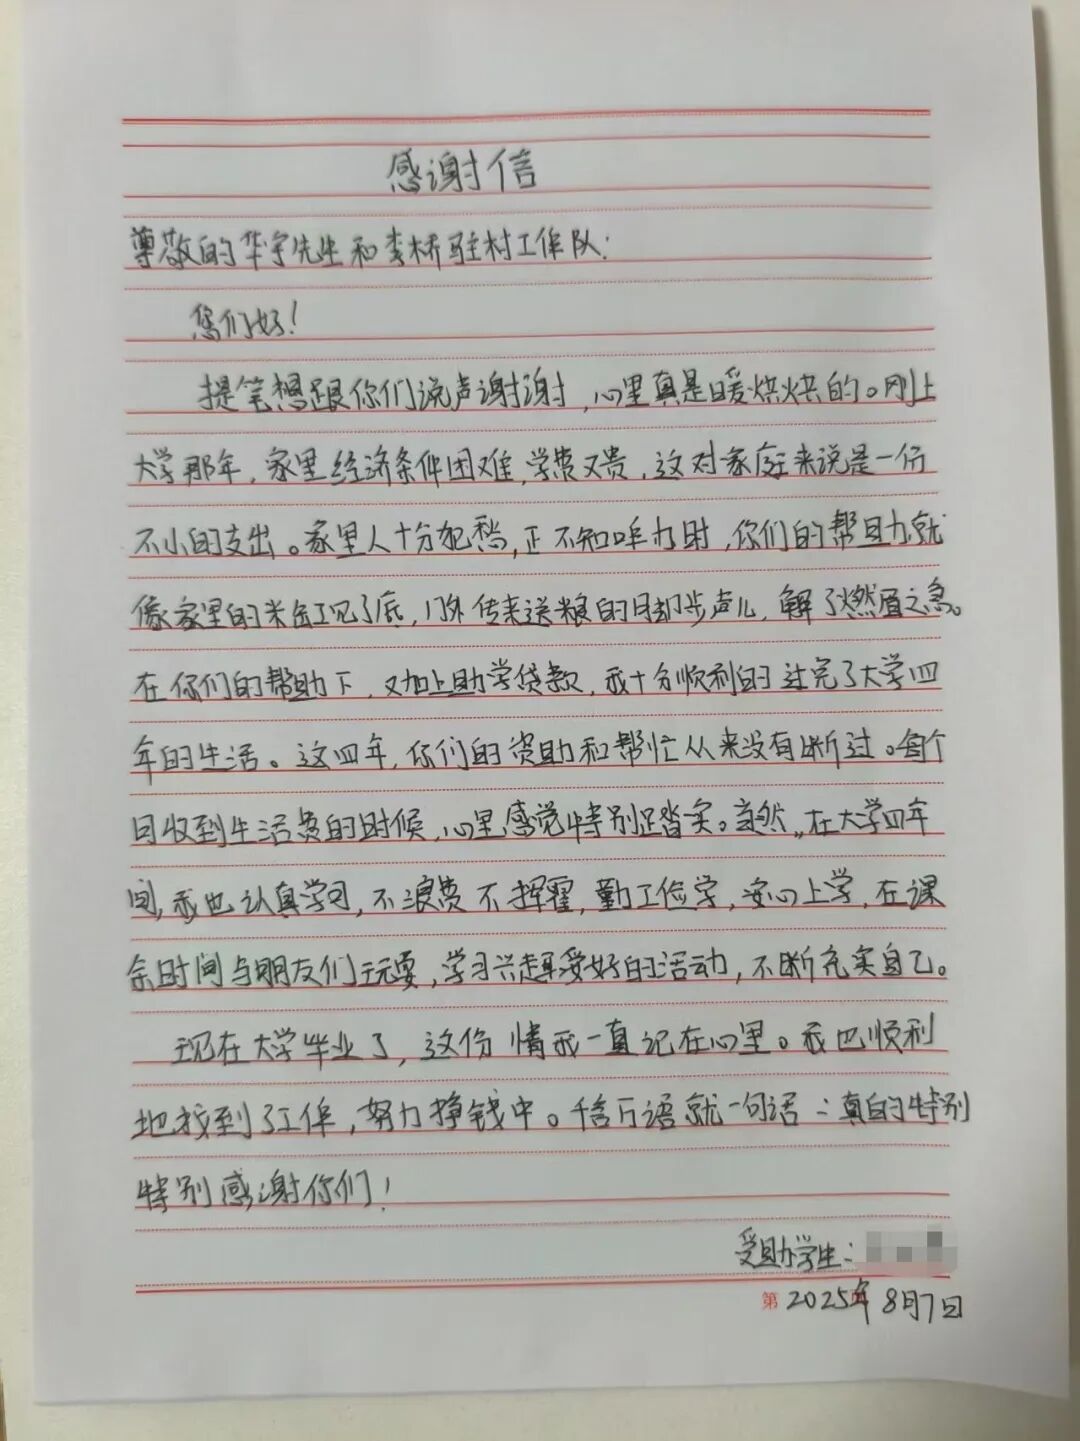 感谢信
尊敬的华宇先生和李桥驻村工作队:
您们好!
提笔想跟你们说声谢谢,心里真是暖烘烘的。刚上
大学那年,家里经济条件困难,学费又贵,这对家庭来说是一份
不小的支出。家里人十分犯愁,正不知咋办时,你们的帮助就
像家里的米缸见了底,门外传来送粮的脚步声儿,解了燃眉之急。
在你们的帮助下,又加上助学贷款,我十分顺利的过完了大学四
年的生活。这四年,你们的资助和帮忙从来没有断过。每个
月收到生活费的时候,心里感觉特别踏实。当然,在大学四年
间,我也认真学习,不浪费不挥霍,勤工俭学,安心上学,在课
余时间与朋友们玩耍,学习兴趣爱好的活动,不断充实自己。
现在大学毕业了,这份情我一直记在心里。我也顺利
地找到了工作,努力挣钱中。千言万语就一句话:真的特别
特别感谢你们!
受助学生:
第 2025年8月7日